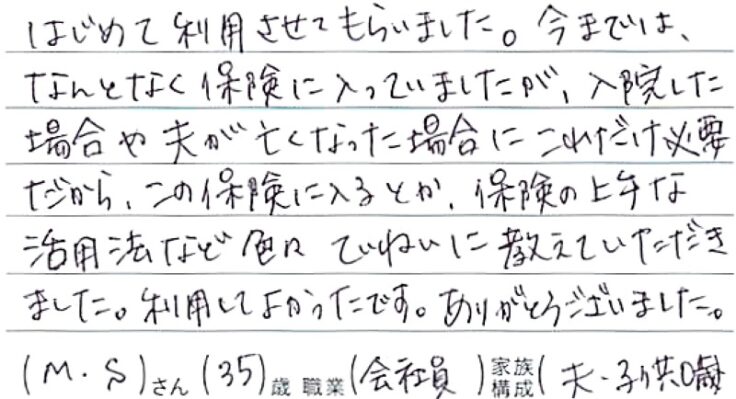 はじめて利用させてもらいました。今までは、
なんとなく保険に入っていましたが、入院した
場合や夫が亡くなった場合にこれだけ必要
だから、この保険に入るとか、保険の上手な
活用法など色々ていねいに教えていただき
ました。利用してよかったです。ありがとうございました。
(M・S)さん(35)歳 職業(会社員)家族構成(夫・子供0歳